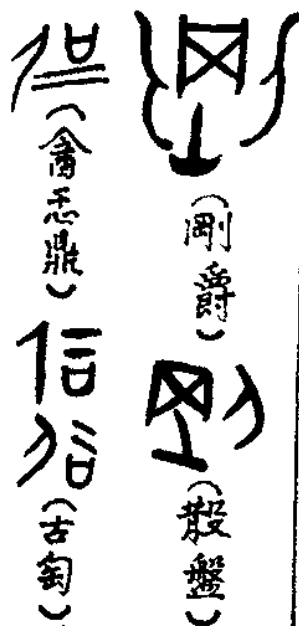 (剛爵)
(散盤)
(酓忎鼎)
(古匋)